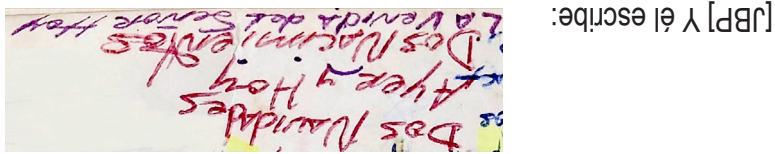 [JBP] Y él escribe:
Dos Navidades
Ayer y Hoy
Dos Nacimientos
La Venida del Señor Hoy